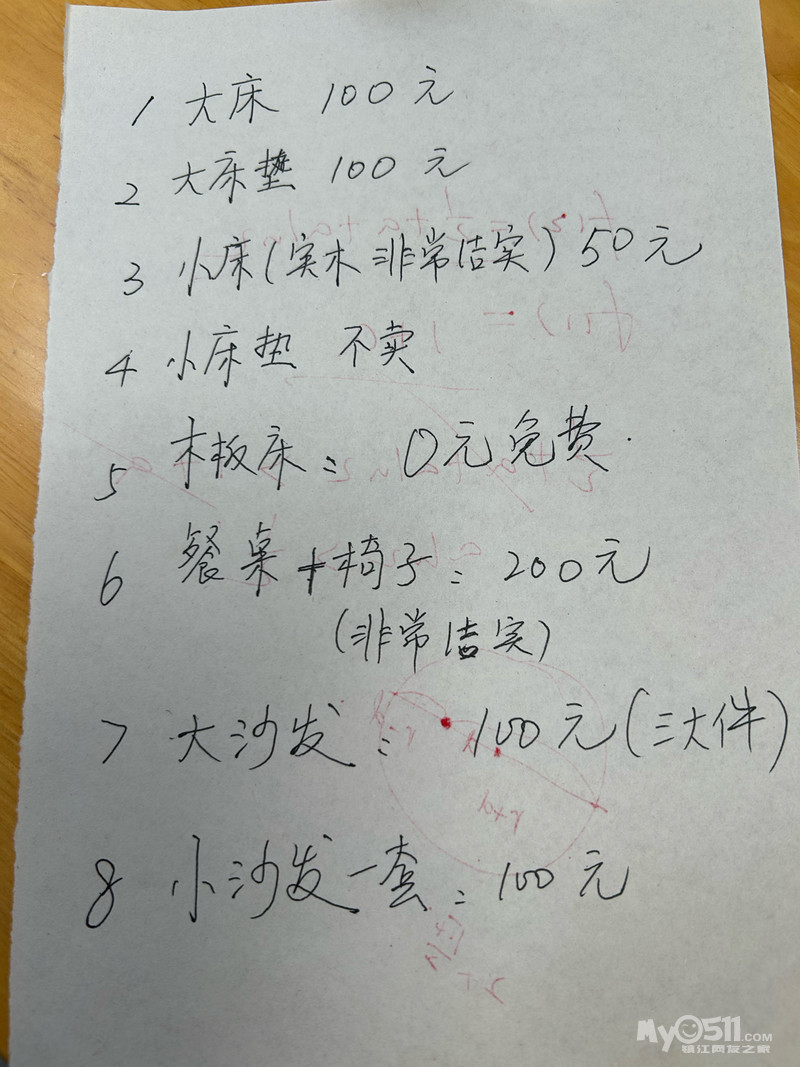 1 大床 100元
2 大床垫 100元
3 小床(实木 非常洁实) 50元
4 小床垫 不卖
5 木板床: 0元免费.
6 餐桌+椅子: 200元
(非常洁实)
7 大沙发: 100元(三大件)
8 小沙发一套: 100元
My0511.COM
镇江网友之家